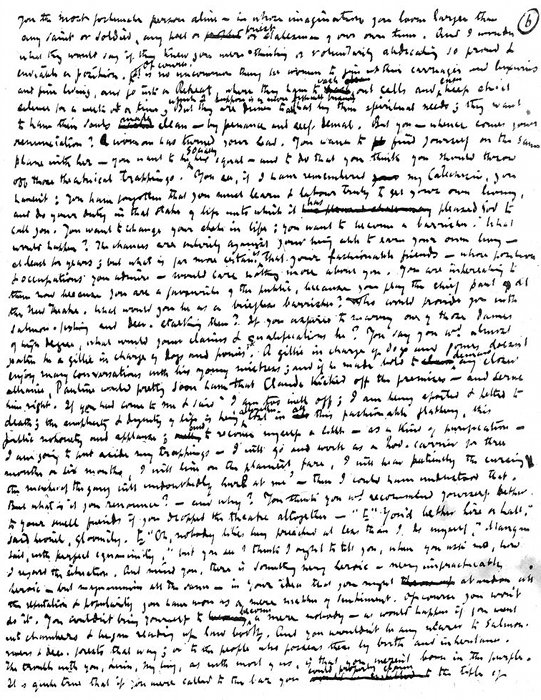 You the most fortunate person alive - in whose imagination you loom larger than
any saint or soldier, any poet or statesman of our own time. And I wonder
what they would say if they knew you were thinking of voluntarily abdicating so proud &
enviable a position. Of course it is no uncommon thing for women to give up their carriages and luxuries
and fine living, and go into a Retreat, where they have to wash out cells and keep strict
silence for a week at a time; but they are driven to that by their spiritual needs; they want
to have their souls made clean - by penance and self-denial. But you - whence comes your
renunciation? A woman has turned your head. You want to find yourself on the same
plane with her - you want to be her social equal - and to do that you think you should throw
off those theatrical trappings. You see, if I have remembered my Catechism, you
haven't; you have forgotten that you must learn & labour truly to get your own living,
and do your duty in that state of life unto which it has pleased God to
call you. You want to change your state in life; you want to become a barrister. What
would happen? The chances are entirely against your being able to earn your own living -
at least for years; but what is far more certain is that your fashionable friends - whose positions
& occupations you admire - would care nothing more about you. You are interesting to
them now because you are a favourite of the public, because you play the chief part at
the New Theatre. What would you be as a briefless barrister? Who would provide you with
salmon-fishing and deer-stalking then? If you aspired to marry one of those dames
of high degree, what would your claims & qualifications be? You say you would almost
rather be a gillie in charge of dogs and ponies. A gillie in charge of dogs and ponies doesn't
enjoy many conversations with his young mistress; and if he made bold to demand any closer
alliance, Pauline would pretty soon have that Claude kicked off the premises - and serve
him right. If you had come to me & said "I am too well off; I am being spoiled & petted to
death; the simplicity & dignity of life is being altogether lost in all this fashionable flattery, this
public notoriety and applause; and to recover myself a little - as a kind of purification -
I am going to put aside my trappings - I will go and work as a hod-carrier for three
months or six months, I will live on the plainest fare, I will bear patiently the cursing
the master of the gang will undoubtedly hurl at me" - then I could have understood that.
But what is it you renounce? - and why? You think you would recommend yourself better
to your swell friends if you dropped the theatre altogether - "You'd better hire a hall,"
said Lionel, gloomily. "Oh, nobody likes being preached at less than I do myself," Mangan
said, with perfect equanimity, "but you see I think I ought to tell you, when you ask me, how
I regard the situation. And mind you, there is something very heroic - very impracticably
heroic - but magnanimous all the same - in your idea that you might abandon all
the reputation & popularity you have won as a mere matter of sentiment. Of course you won't
do it. You couldn't bring yourself to become a mere nobody - as would happen if you went
into chambers & began reading up law books. And you wouldn't be any nearer to salmon-
rivers & deer-forests that way; or to the people who possess these by birth and inheritance.
The trouble with you, Linn, my boy, as with most of us, is that you weren't born in the purple.
It is quite true that if you were called to the bar you could properly claim to the title of